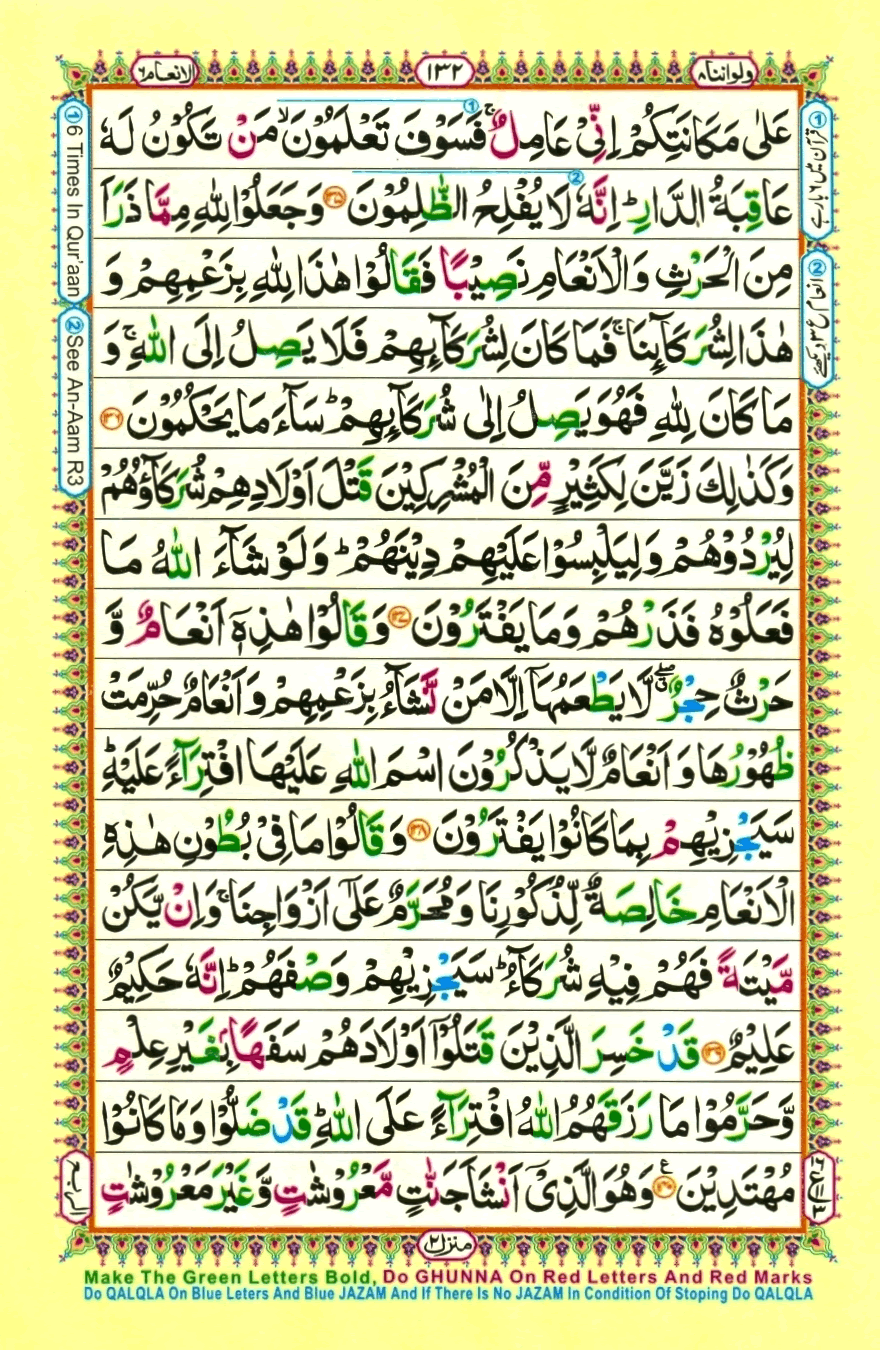 ولواننا۸
۱۳۲
الانعام۶
عَلٰى مَكَانَتِكُمْ اِنِّيْ عَامِلٌ ۚ فَسَوْفَ تَعْلَمُوْنَ ۙ مَنْ تَكُوْنُ لَهٗ
عَاقِبَةُ الدَّارِ ؕ اِنَّهٗ لَا يُفْلِحُ الظّٰلِمُوْنَ ﴿۱۳۵﴾ وَجَعَلُوْا لِلّٰهِ مِمَّا ذَرَاَ
مِنَ الْحَرْثِ وَالْاَنْعَامِ نَصِيْبًا فَقَالُوْا هٰذَا لِلّٰهِ بِزَعْمِهِمْ وَ
هٰذَا لِشُرَكَآىِٕنَا ۚ فَمَا كَانَ لِشُرَكَآىِٕهِمْ فَلَا يَصِلُ اِلَى اللّٰهِ ۚ وَ
مَا كَانَ لِلّٰهِ فَهُوَ يَصِلُ اِلٰى شُرَكَآىِٕهِمْ ؕ سَآءَ مَا يَحْكُمُوْنَ ﴿۱۳۶﴾
وَكَذٰلِكَ زَيَّنَ لِكَثِيْرٍ مِّنَ الْمُشْرِكِيْنَ قَتْلَ اَوْلَادِهِمْ شُرَكَآؤُهُمْ
لِيُرْدُوْهُمْ وَلِيَلْبِسُوْا عَلَيْهِمْ دِيْنَهُمْ ؕ وَلَوْ شَآءَ اللّٰهُ مَا
فَعَلُوْهُ فَذَرْهُمْ وَمَا يَفْتَرُوْنَ ﴿۱۳۷﴾ وَقَالُوْا هٰذِهٖٓ اَنْعَامٌ وَّ
حَرْثٌ حِجْرٌ ۖ لَّا يَطْعَمُهَآ اِلَّا مَنْ نَّشَآءُ بِزَعْمِهِمْ وَاَنْعَامٌ حُرِّمَتْ
ظُهُوْرُهَا وَاَنْعَامٌ لَّا يَذْكُرُوْنَ اسْمَ اللّٰهِ عَلَيْهَا افْتِرَآءً عَلَيْهِ ؕ
سَيَجْزِيْهِمْ بِمَا كَانُوْا يَفْتَرُوْنَ ﴿۱۳۸﴾ وَقَالُوْا مَا فِيْ بُطُوْنِ هٰذِهِ
الْاَنْعَامِ خَالِصَةٌ لِّذُكُوْرِنَا وَمُحَرَّمٌ عَلٰٓى اَزْوَاجِنَا ۚ وَاِنْ يَّكُنْ
مَّيْتَةً فَهُمْ فِيْهِ شُرَكَآءُ ؕ سَيَجْزِيْهِمْ وَصْفَهُمْ ؕ اِنَّهٗ حَكِيْمٌ
عَلِيْمٌ ﴿۱۳۹﴾ قَدْ خَسِرَ الَّذِيْنَ قَتَلُوْٓا اَوْلَادَهُمْ سَفَهًۢا بِغَيْرِ عِلْمٍ
وَّحَرَّمُوْا مَا رَزَقَهُمُ اللّٰهُ افْتِرَآءً عَلَى اللّٰهِ ؕ قَدْ ضَلُّوْا وَمَا كَانُوْا
مُهْتَدِيْنَ ﴿۱۴۰﴾ وَهُوَ الَّذِيْٓ اَنْشَاَ جَنّٰتٍ مَّعْرُوْشٰتٍ وَّغَيْرَ مَعْرُوْشٰتٍ
① قرآن میں ۶ بار ہے
② انعام ع ۳ دیکھئے
① 6 Times In Qur'aan
② See An-Aam R3
الربع
منزل۲
Make The Green Letters Bold, Do GHUNNA On Red Letters And Red Marks
Do QALQLA On Blue Leters And Blue JAZAM And If There Is No JAZAM In Condition Of Stoping Do QALQLA